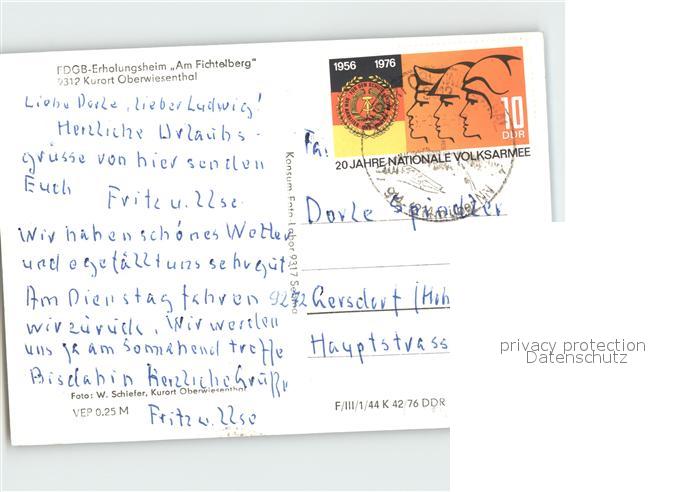 FDGB-Erholungsheim „Am Fichtelberg"
9312 Kurort Oberwiesenthal
Liebe Dorle, lieber Ludwig!
Herzliche Urlaubs-
grüsse von hier senden
Euch Fritz u. Ilse
Wir haben schönes Wetter
und es gefällt uns sehr gut
Am Dienstag fahren
wir zurück. Wir werden
uns ja am Sonnabend treffe
Bis dahin Herzliche Grüße
Fritz u. Ilse
Foto: W. Schiefer, Kurort Oberwiesenthal
VEP 0.25 M
Konsum Foto Labor 9317
1956 1976
10
DDR
20 JAHRE NATIONALE VOLKSARMEE
Fa:
Dorle Spindler
9272 Gersdorf (Hoh
Hauptstrass
F/III/1/44 K 42/76 DDR
privacy protection
Datenschutz